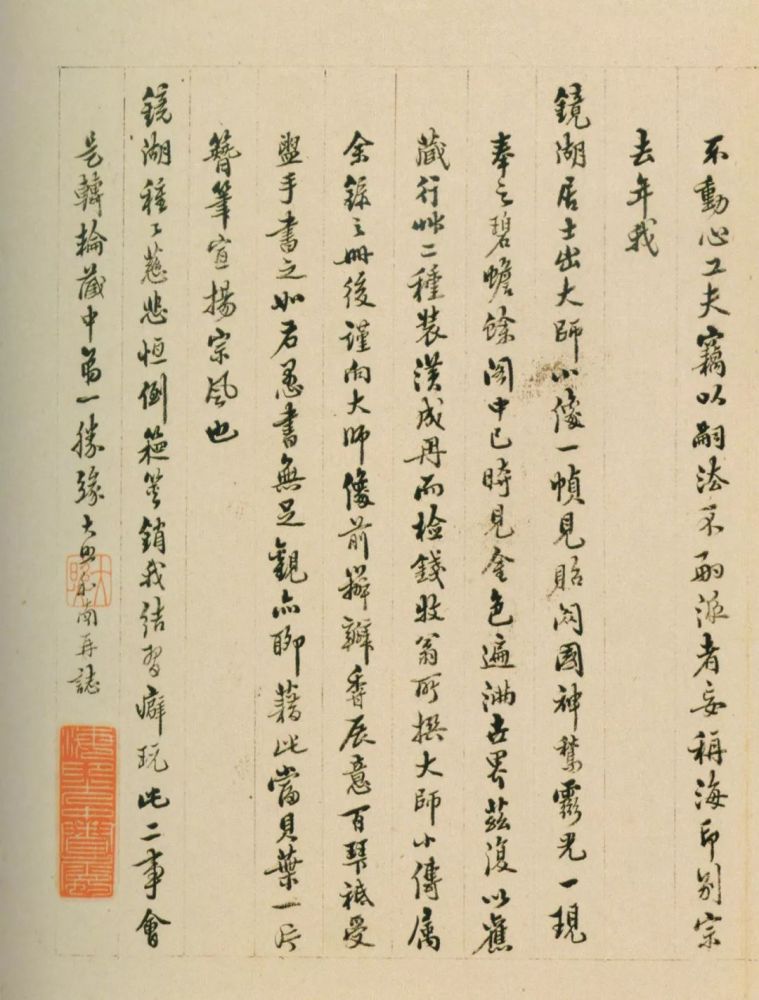 不動心工夫竊以嗣法不嗣派者妄稱海印別宗
去年我
鏡湖居士出大師小像一幀見貽閱國神鷔靈光一現
奉之碧蟾餘閣中已時見金色遍滿世界茲復以舊
藏行草二種裝潢成冊而檢錢牧翁所撰大師小傳屬
余錄之冊後謹向大師像前擗瓣香展意百拜祗受
盥手書之如右愚書無足觀亦聊藉此當貝葉一片
簪筆宣揚宗風也
鏡湖種工慈悲恒倒篋笥銷我結習癖玩此二事會
是轉輪藏中第一勝緣大 和南再誌